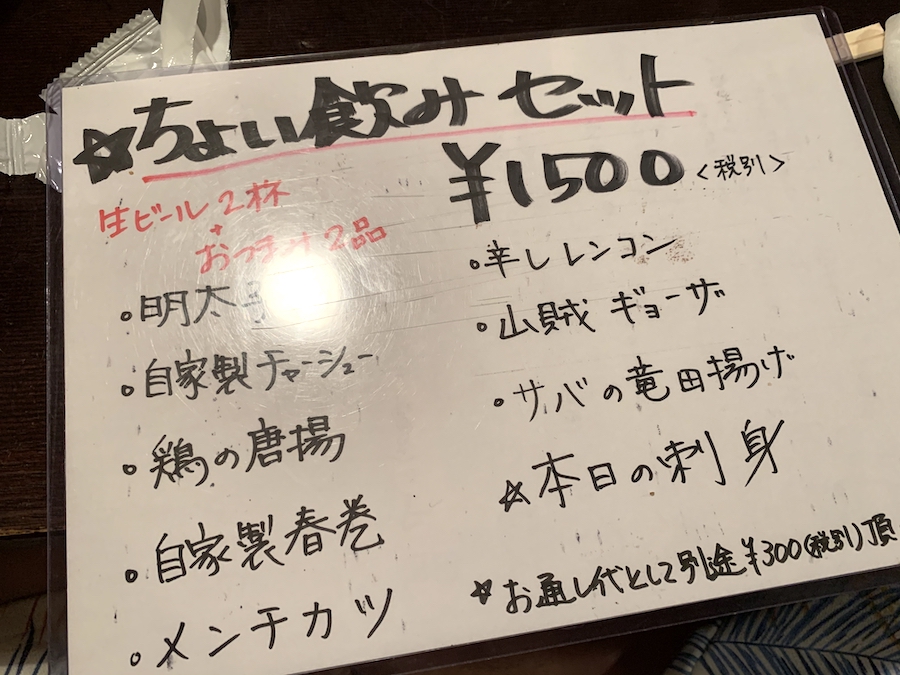 ☆ちょい飲みセット
¥1500<税別>
生ビール2杯
+
おつまみ2品
・明太子
・自家製チャーシュー
・鶏の唐揚
・自家製春巻
・メンチカツ
・辛しレンコン
・山賊ギョーザ
・サバの竜田揚げ
☆本日の刺身
☆お通し代として別途¥300(税別)頂